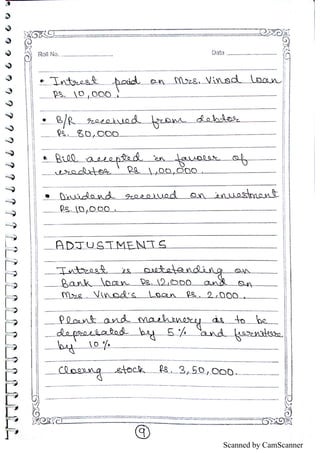 Roll No.
Date
• Intrest paid on Mrs. Vinod Loan
Rs. 10,000.
• B/R received from debtor
Rs. 80,000
• Bill accepted in favour of
creditor Rs 1,00,000.
• Dividend received on investment
Rs. 10,000.
ADJUSTMENTS
Intrest is outstanding on
Bank loan Rs. 12,000 and on
Mrs Vinod's Loan Rs. 2,000.
Plant and machinery as to be
depreciated by 5% and furniture
by 10%
Closing stock Rs. 3,50,000.
9
Scanned by CamScanner